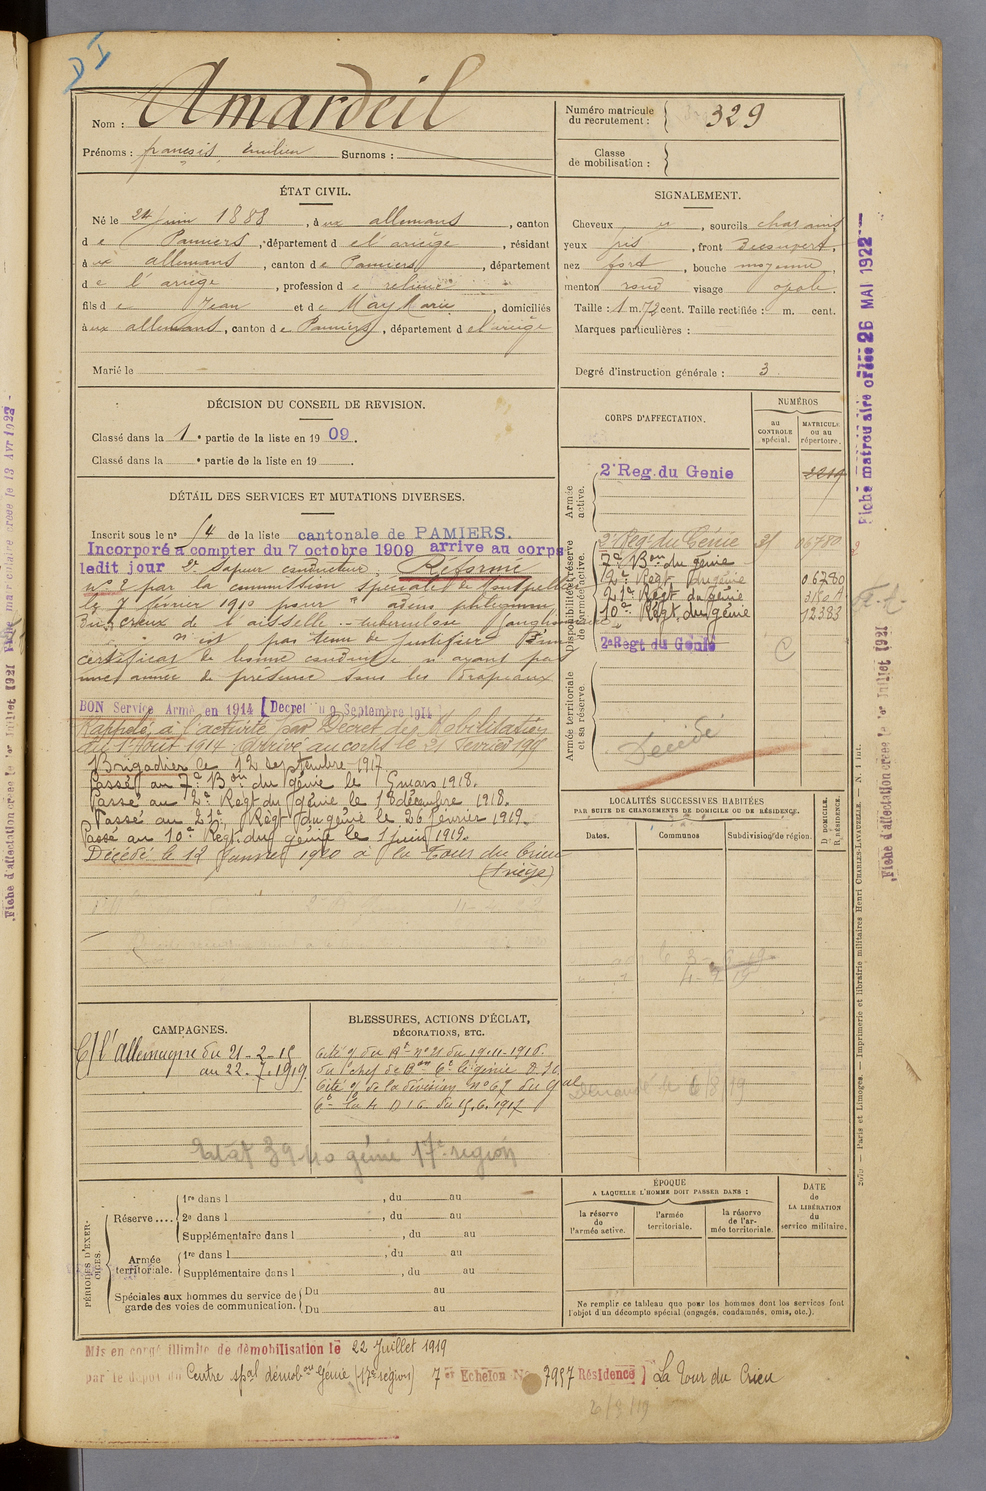 DI
Nom : Amardeil
Prénoms : françois Emilien Surnoms :
Numéro matricule du recrutement : 329
Classe de mobilisation :
ÉTAT CIVIL.
Né le 24 juin 1888, à ux allemans, canton
d e Pamiers, département d e l'ariège, résidant
à ux allemans, canton d e Pamiers, département
d e l'ariège, profession d e
fils d e Jean et d e May Marie, domiciliés
à ux allemans, canton d e Pamiers, département d e l'ariège
Marié le
SIGNALEMENT.
Cheveux , sourcils chatains
yeux gris, front Découvert,
nez fort, bouche moyenne,
menton rond visage ovale.
Taille : 1 m. 72 cent. Taille rectifiée : m. cent.
Marques particulières :
Degré d'instruction générale : 3
DÉCISION DU CONSEIL DE REVISION.
Classé dans la 1e partie de la liste en 1909.
Classé dans la e partie de la liste en 19 .
DÉTAIL DES SERVICES ET MUTATIONS DIVERSES.
Inscrit sous le no 54 de la liste cantonale de PAMIERS.
Incorporé à compter du 7 octobre 1909 arrivé au corps
ledit jour 2e Sapeur conducteur. Réformé
no 2 par la commission spéciale de Montpellier
le 7 février 1910 pour
du creux de l'aisselle - tuberculose
n'est pas tenu de justifier d'un
certificat de bonne conduite n'ayant pas
une année de présence sous les Drapeaux
BON Service Armé en 1914 [Decret du 9 Septembre 1914
Rappelé à l'activité par Décret de Mobilisation
du 1er Août 1914. Arrivé au corps le 21 février 1915
Brigadier le 12 septembre 1917
Passé au 7e Bon du génie le 16 mars 1918.
Passé au 2e Régt du génie le 18 décembre 1918.
Passé au 21e Régt du génie le 26 février 1919.
Passé au 10e Régt du génie le 1 juin 1919.
Décédé le 12 Janvier 1920 à La Tour du Crieu
(Ariège)
CORPS D'AFFECTATION.
NUMÉROS
au CONTROLE spécial.
MATRICULE ou au répertoire.
Armée active.
2e Reg. du Genie
Disponibilité et réserve de l'armée active.
2e Regt du Génie 06780
7e Bon du génie
2e Regt du génie 06780
21e Regt du génie
10e Régt du génie 12383
2e Regt du Génie
C
Armée territoriale et sa réserve
Décédé
LOCALITÉS SUCCESSIVES HABITÉES
PAR SUITE DE CHANGEMENTS DE DOMICILE OU DE RÉSIDENCE.
Dates. Communes Subdivision de région.
D. DOMICILE. R. RÉSIDENCE.
CAMPAGNES.
C/ l'Allemagne du 21-2-15
au 22.7.1919
BLESSURES, ACTIONS D'ÉCLAT,
DÉCORATIONS, ETC.
Demandé le 6/8/19
Etat 39 10 génie 17e région
PÉRIODES D'EXERCICES.
Réserve....
1re dans l , du au
2e dans l , du au
Supplémentaire dans l , du au
Armée territoriale.
1re dans l , du au
Supplémentaire dans l , du au
Spéciales aux hommes du service de garde des voies de communication.
Du au
Du au
ÉPOQUE
A LAQUELLE L'HOMME DOIT PASSER DANS :
la réserve de l'armée active.
l'armée territoriale.
la réserve de l'armée territoriale.
DATE de LA LIBÉRATION du service militaire.
Ne remplir ce tableau que pour les hommes dont les services font
l'objet d'un décompte spécial (engagés, condamnés, omis, etc.).
Mis en congé illimité de démobilisation le 22 Juillet 1919
par le dépôt du Centre spal démob. du Génie (17e région) 7e Echelon No 7957 Résidence ] La Tour du Crieu
Fiche matriculaire créée 26 MAI 1922
Fiche d'affectation créée le 1er Juillet 1921
Paris et Limoges. — Imprimerie et librairie militaires Henri CHARLES-LAVAUZELLE. — N. 1 int.